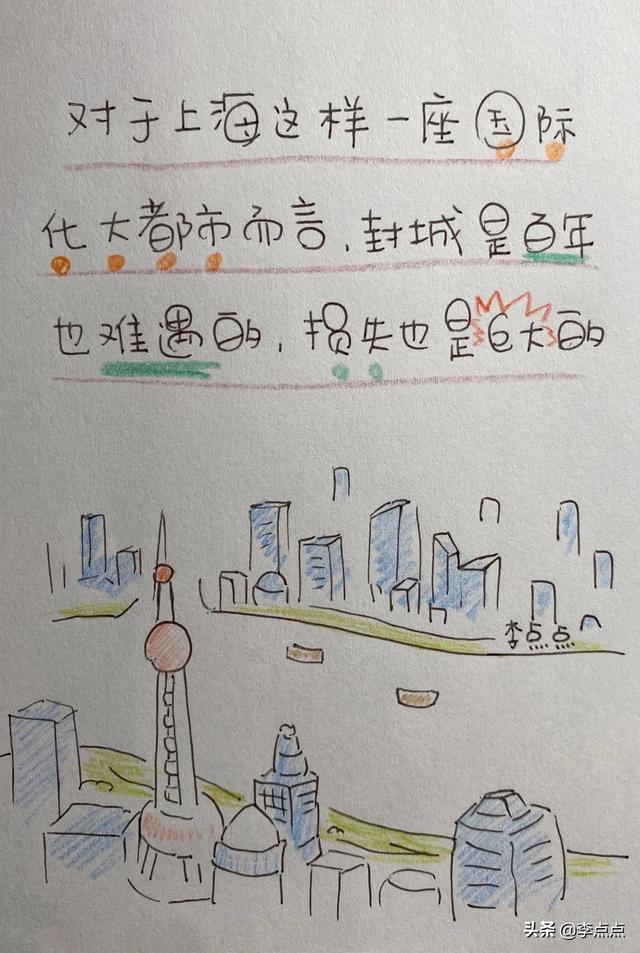 对于上海这样一座国际
化大都市而言，封城是百年
也难遇的，损失也是巨大的
李点点
头条 @李点点